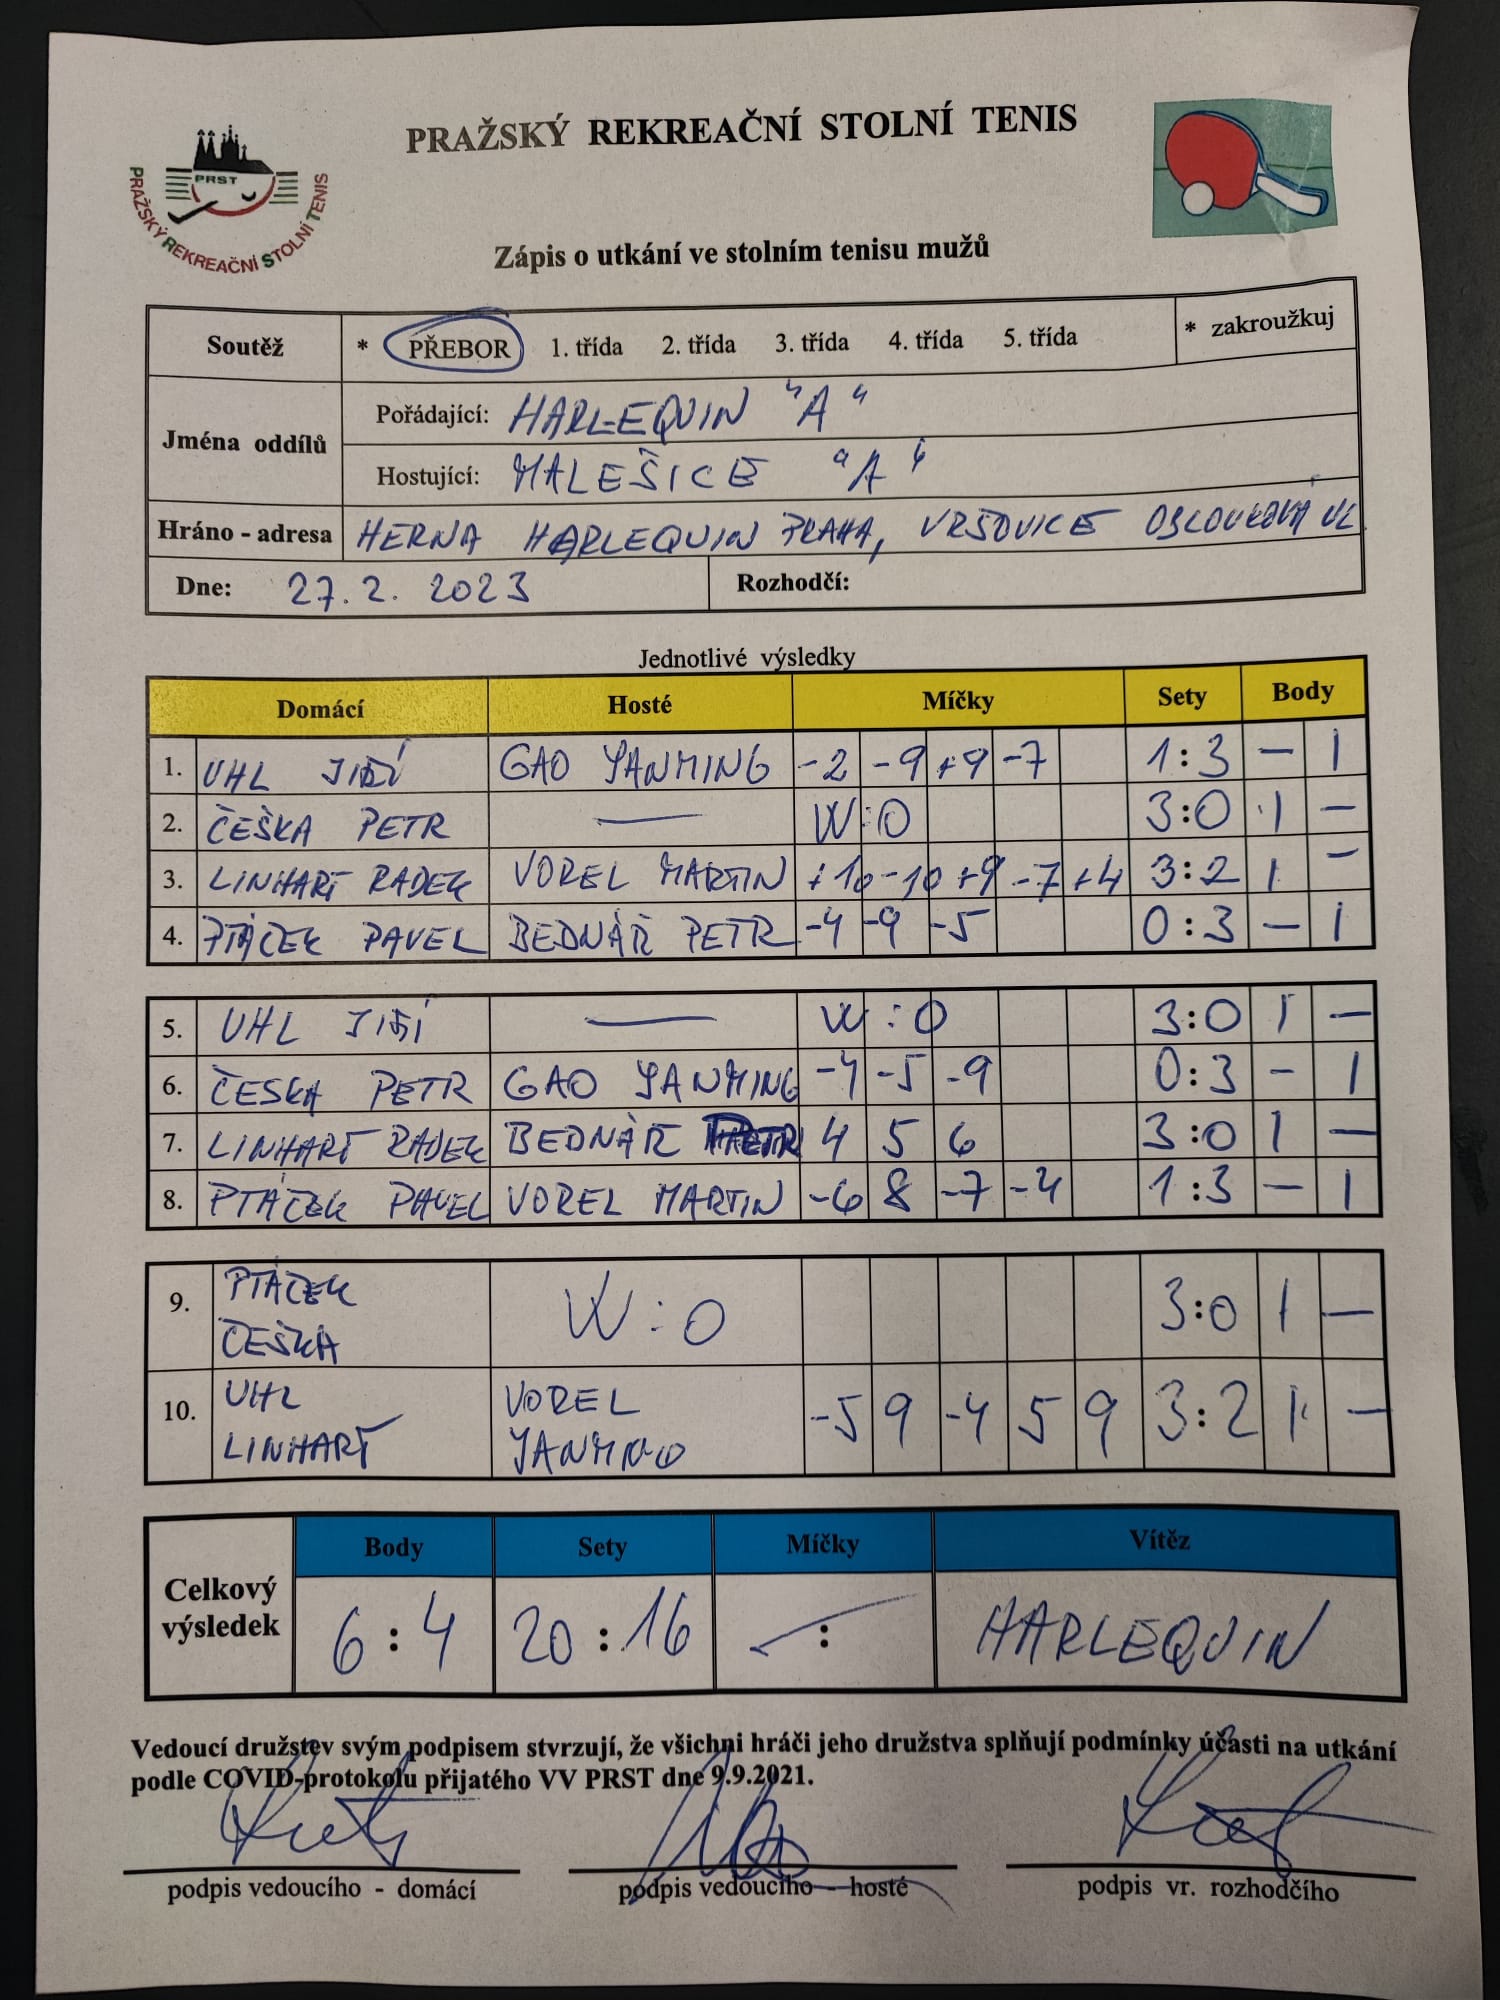 PRAŽSKÝ REKREAČNÍ STOLNÍ TENIS
PRST
PRAŽSKÝ REKREAČNÍ STOLNÍ TENIS
Zápis o utkání ve stolním tenisu mužů
Soutěž * PŘEBOR 1. třída 2. třída 3. třída 4. třída 5. třída * zakroužkuj
Jména oddílů
Pořádající: HARLEQUIN "A"
Hostující: MALEŠICE "A"
Hráno - adresa HERNA HARLEQUIN PRAHA, VRŠOVICE
Dne: 27. 2. 2023 Rozhodčí:
Jednotlivé výsledky
Domácí Hosté Míčky Sety Body
1. UHL JIŘÍ GAO YANMING -2 -9 +9 -7 1:3 - 1
2. ČEŠKA PETR — W:O 3:0 1 -
3. LINHART RADEK VOREL MARTIN +10 -10 +9 -7 +4 3:2 1 -
4. PTÁČEK PAVEL BEDNÁŘ PETR -4 -9 -5 0:3 - 1
5. UHL JIŘÍ — W:O 3:0 1 -
6. ČEŠKA PETR GAO YANMING -4 -5 -9 0:3 - 1
7. LINHART RADEK BEDNÁŘ PETR 4 5 6 3:0 1 -
8. PTÁČEK PAVEL VOREL MARTIN -6 8 -7 -4 1:3 - 1
9. PTÁČEK ČEŠKA W:O 3:0 1 -
10. UHL LINHART VOREL YANMING -5 9 -4 5 9 3:2 1 -
Celkový výsledek
Body Sety Míčky Vítěz
6:4 20:16 : HARLEQUIN
Vedoucí družstev svým podpisem stvrzují, že všichni hráči jeho družstva splňují podmínky účasti na utkání
podle COVID-protokolu přijatého VV PRST dne 9.9.2021.
podpis vedoucího - domácí podpis vedoucího - hosté podpis vr. rozhodčího